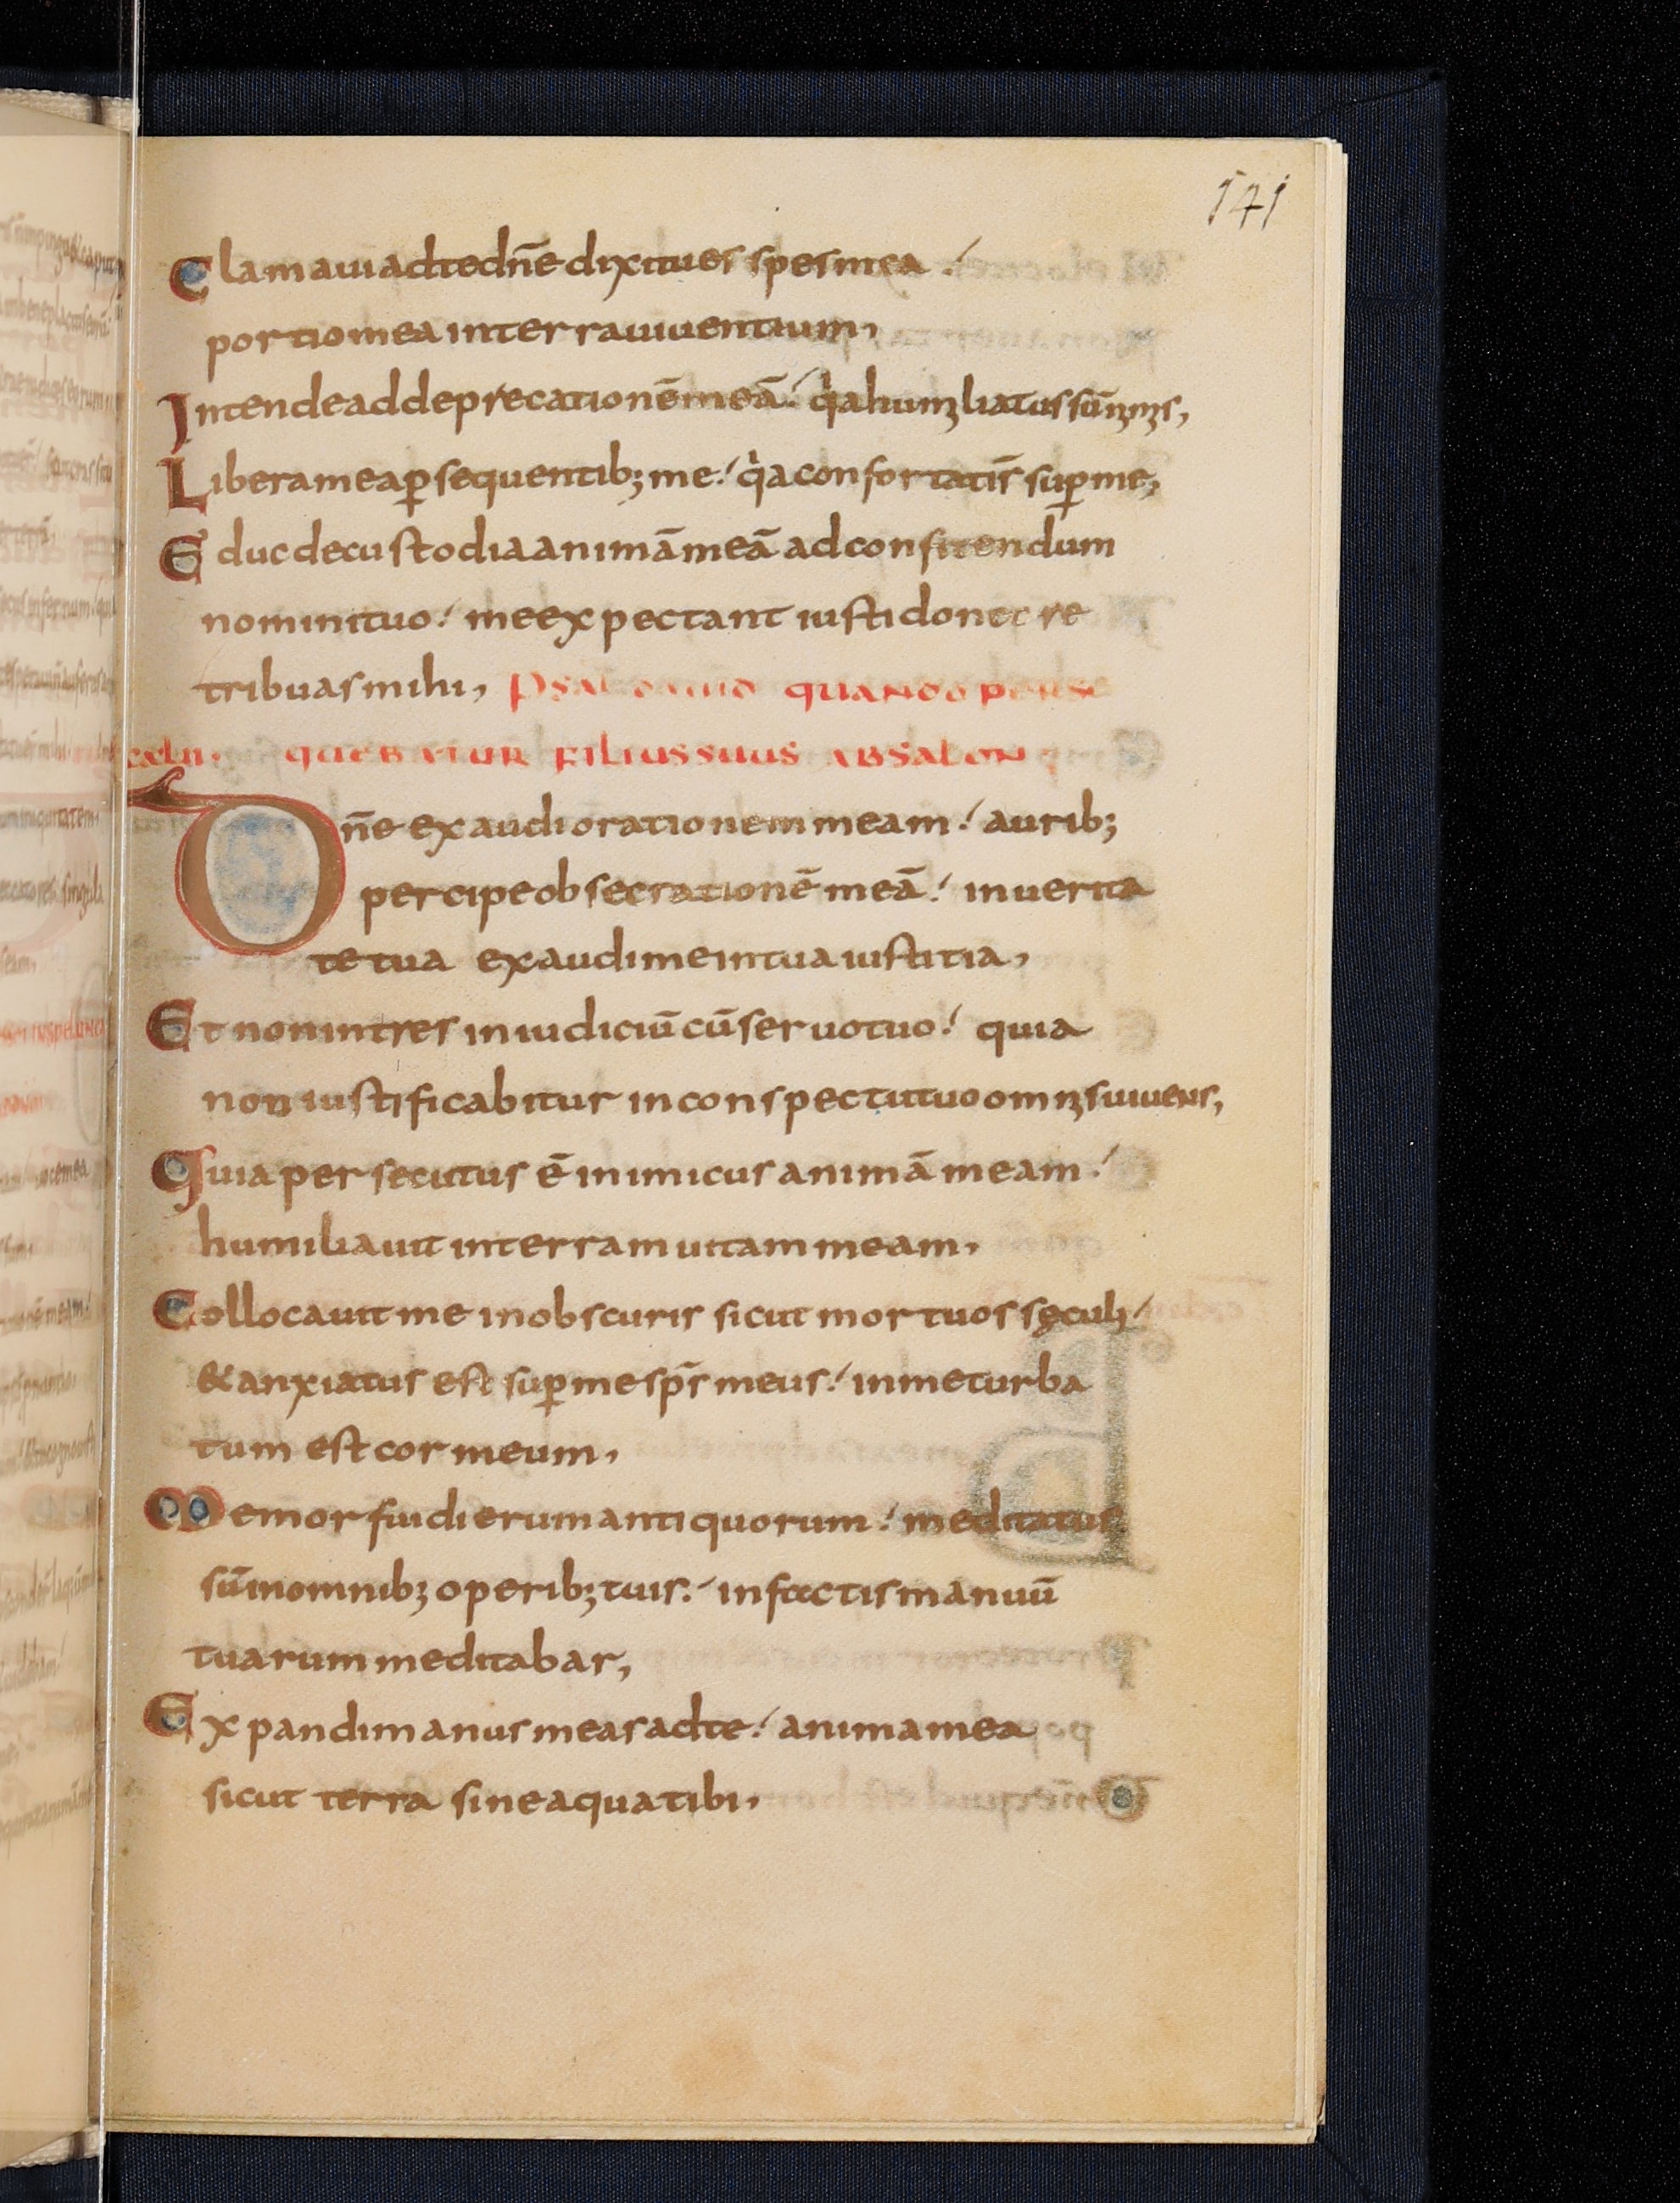 141
Clamaui ad te dn̄e dixi tu es spes mea
portio mea in terra uiuentium,
Intende ad deprecationē meā qͥa humiliatus sū nimis,
Libera me a ꝑsequentib; me qͥa confortati sꝉ suꝑ me,
Educ de custodia animā meā ad confitendum
nomini tuo me expectant iusti donec re
tribuas mihi, Psal dauid quando perse
quebatur filius suus absalon
Dn̄e exaudi orationem meam aurib;
percipe obsecrationē meā in uerita
te tua exaudi me in tua iustitia,
Et non intres in iudiciū cū seruo tuo quia
non iustificabitur in conspectu tuo omnis uiuens,
Quia persecutus ē inimicus animā meam
humiliauit in terram uitam meam,
Collocauit me in obscuris sicut mortuos sęculi
& anxiatus est suꝑ me sp̄s meus in me turba
tum est cor meum,
Memor fui dierum antiquorum meditatus
sū in omnib; operib; tuis in factis manuū
tuarum meditabar,
Expandi manus meas ad te anima mea
sicut terra sine aqua tibi,